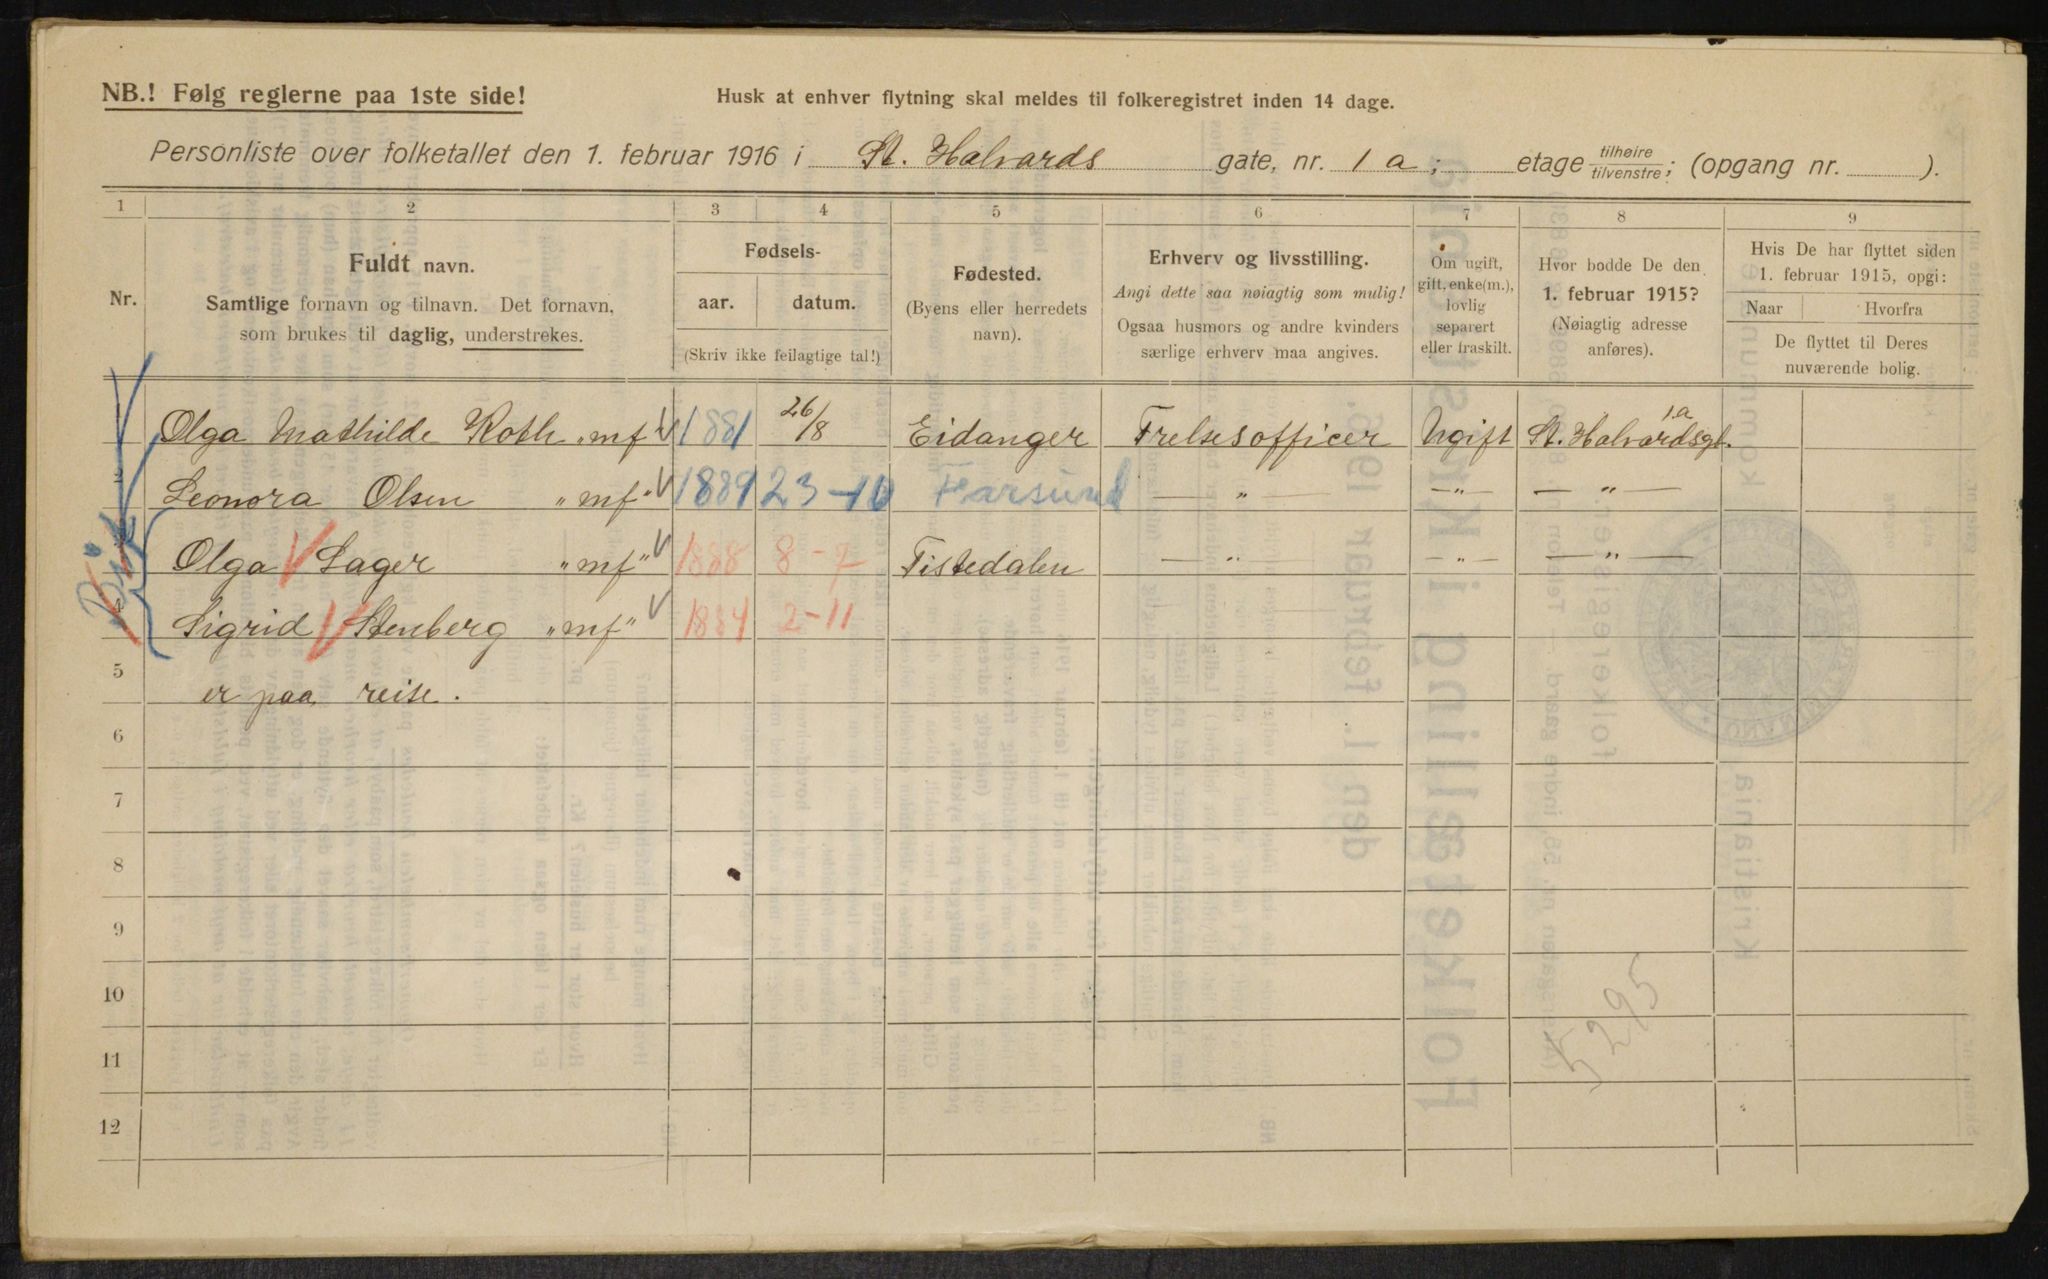 NB.! Følg reglerne paa 1ste side!
Husk at enhver flytning skal meldes til folkeregistret inden 14 dage.
Personliste over folketallet den 1. februar 1916 i St. Halvards gate, nr. 1 a; etage tilhøire tilvenstre; (opgang nr. ).
1 2 3 4 5 6 7 8 9
Nr.
Fuldt navn.
Samtlige fornavn og tilnavn. Det fornavn,
som brukes til daglig, understrekes.
Fødsels-
aar. datum.
(Skriv ikke feilagtige tal!)
Fødested.
(Byens eller herredets
navn).
Erhverv og livsstilling.
Angi dette saa nøiagtig som mulig!
Ogsaa husmors og andre kvinders
særlige erhverv maa angives.
Om ugift,
gift, enke(m.),
lovlig
separert
eller fraskilt.
Hvor bodde De den
1. februar 1915?
(Nøiagtig adresse
anføres).
Hvis De har flyttet siden
1. februar 1915, opgi:
Naar Hvorfra
De flyttet til Deres
nuværende bolig.
Olga Mathilde Roth "mf" 1881 26/8 Eidanger Frelsesofficer Ugift St. Halvardsgt. 1a
2 Leonora Olsen "mf" 1889 23-10 Farsund — " — — " — — " —
Olga Lager "mf" 1888 8-7 Tistedalen — " — — " — — " —
Sigrid Stenberg "mf" 1884 2-11
5 er paa reise.
6
7
8
9
10
11
12
5395